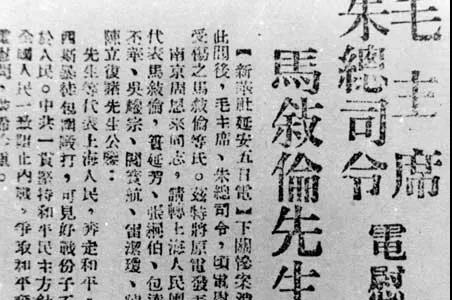 毛主席
朱總司令 電慰
馬敍倫先生
【新華社延安五日電】下關慘案
此間後,毛主席、朱總司令,頃電慰
受傷之馬敍倫等氏。茲特將原電發
南京周恩來同志,請轉上海人民團
代表馬敍倫,簣延芳、張絅伯、包
不華、吳耀宗、閻寳航、雷潔瓊、
陳立復諸先生公鑒:
先生等代表上海人民,奔走和平,
西斯暴徒包圍毆打,可見好戰份子不
於人民。中共一貫堅持和平民主方針
全國人民一致阻止內戰,爭取和平